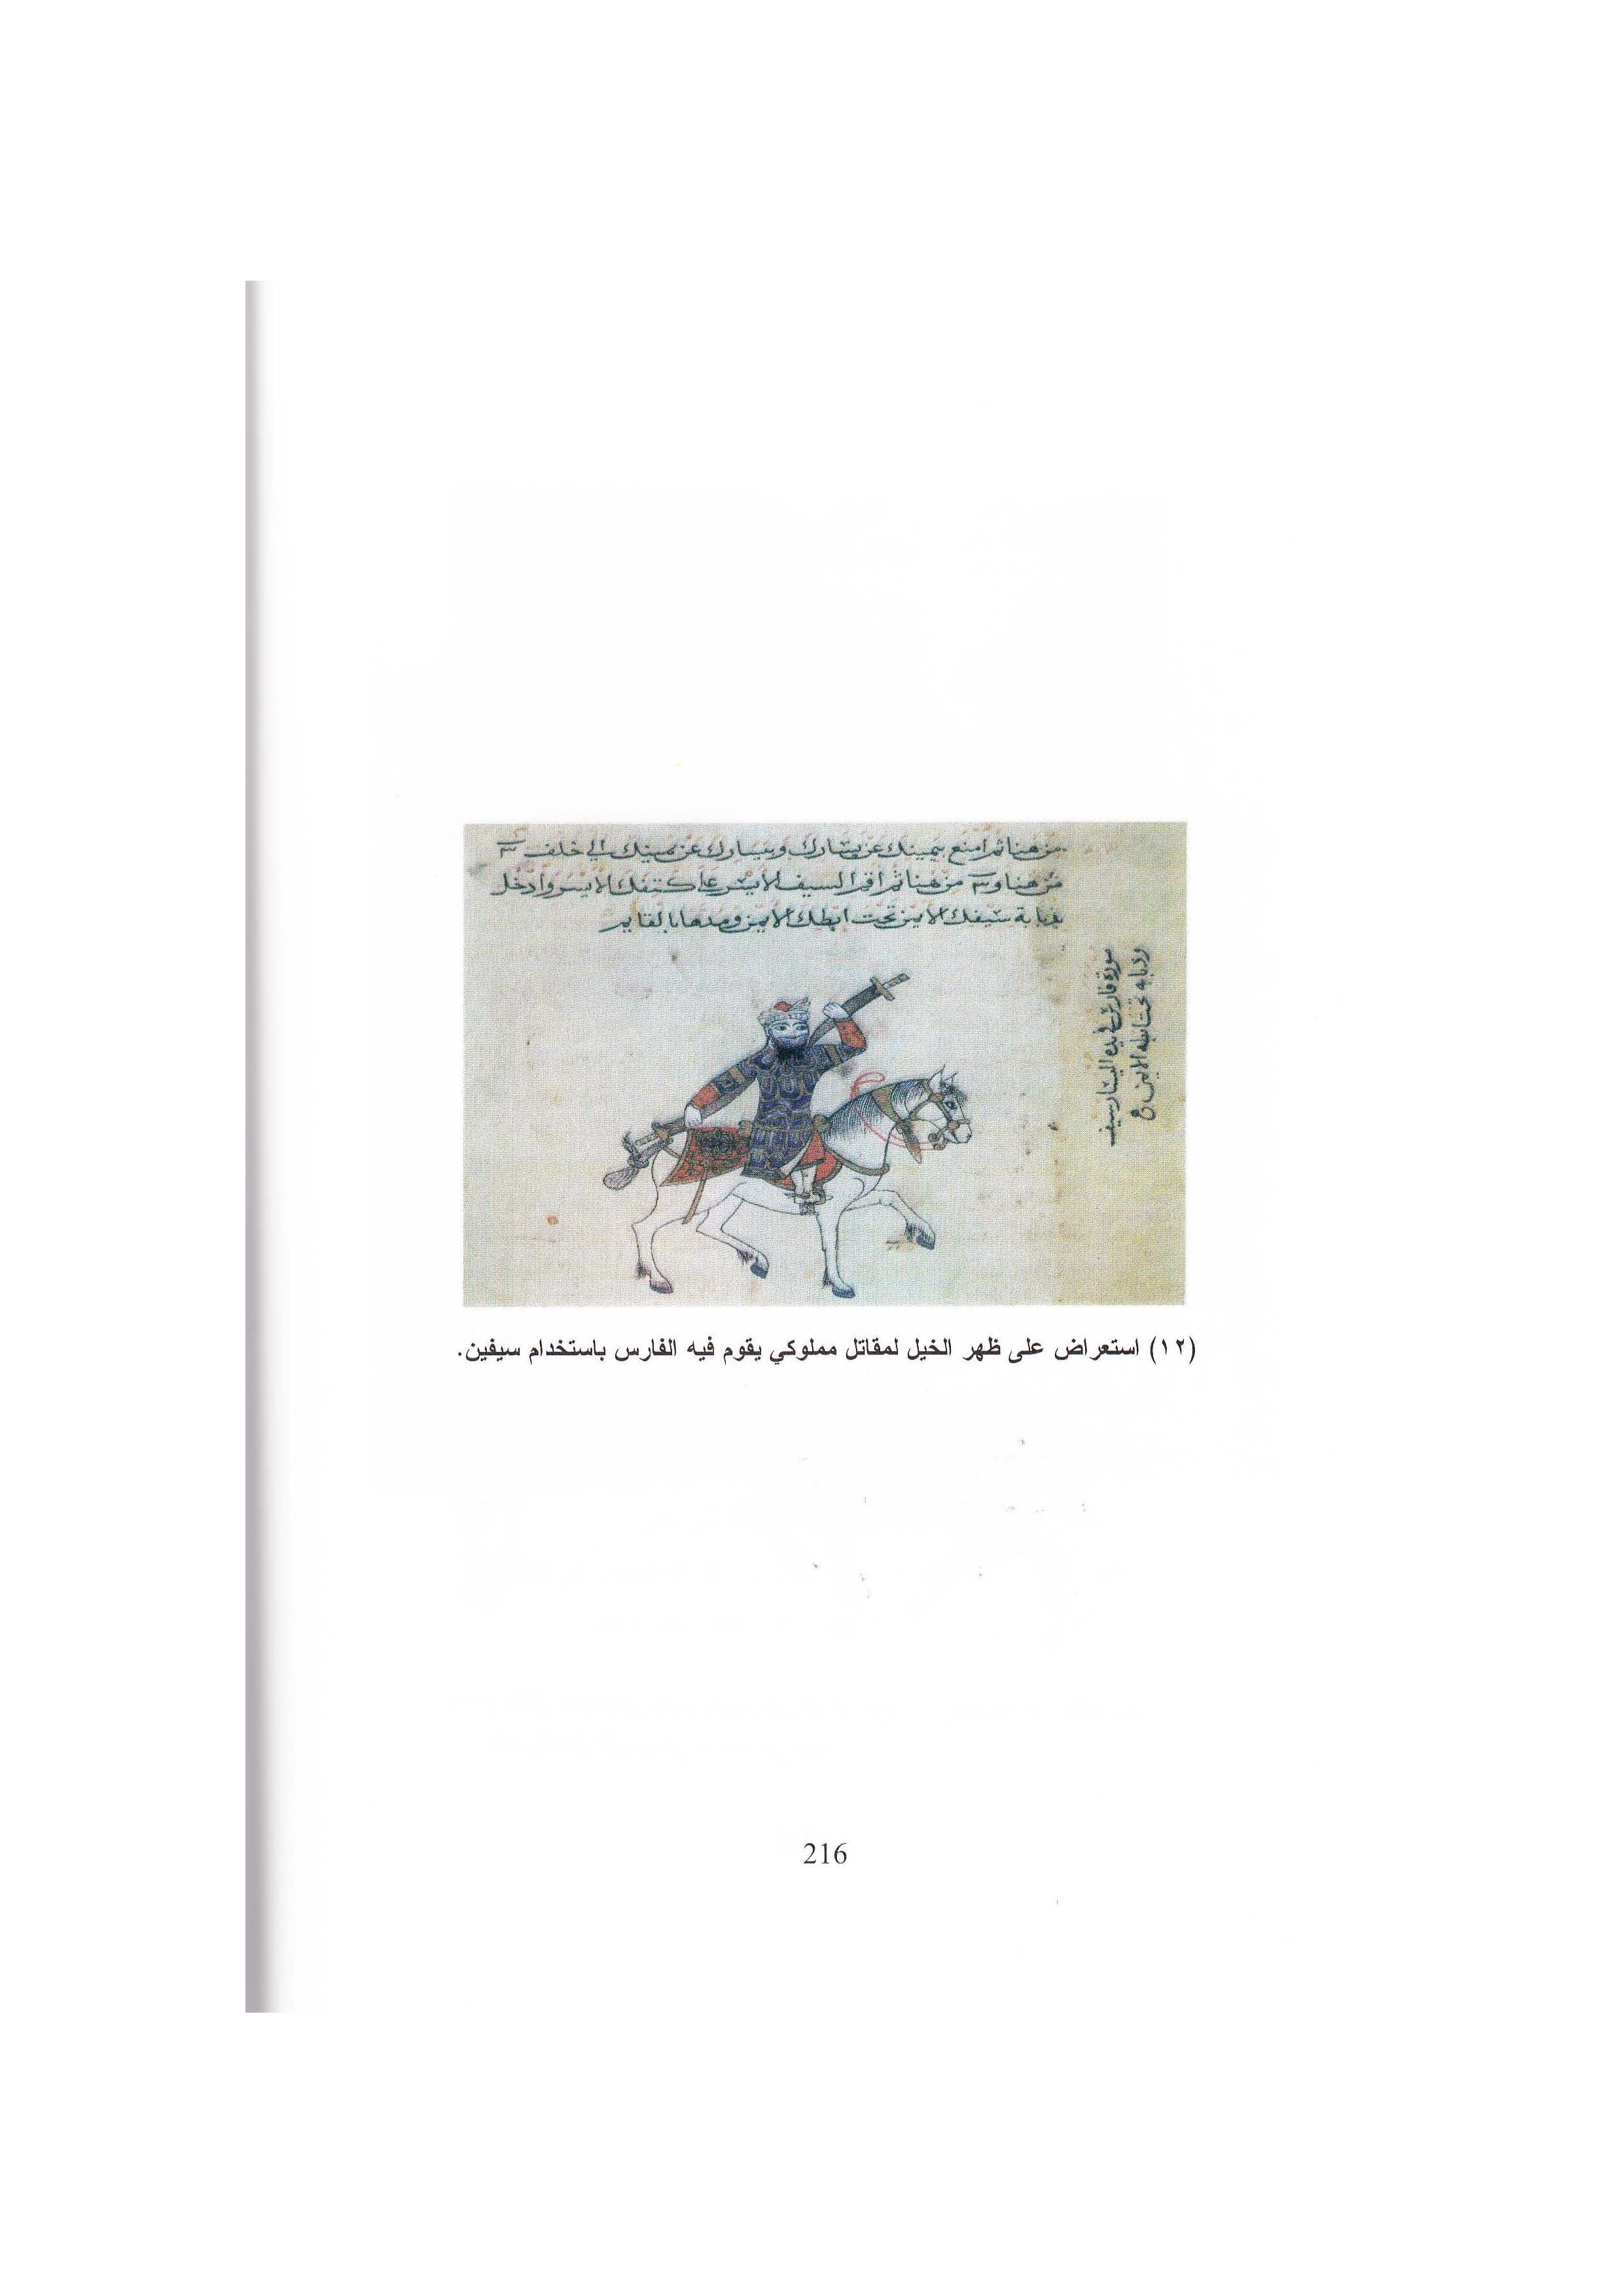 من هنا ثم امنع بيمينك عن يسارك وبيسارك عن يمينك الي خلف
من هنا و من هنا ثم اقم السيف الايسر علي كتفك الايسر وادخل
ذبابة سيفك الايمن تحت ابطك الايمن ومدها بالقايم
صورة فارس في يده اليسار سيف
تحت ابطه الايمن
(١٢) استعراض على ظهر الخيل لمقاتل مملوكي يقوم فيه الفارس باستخدام سيفين.
216